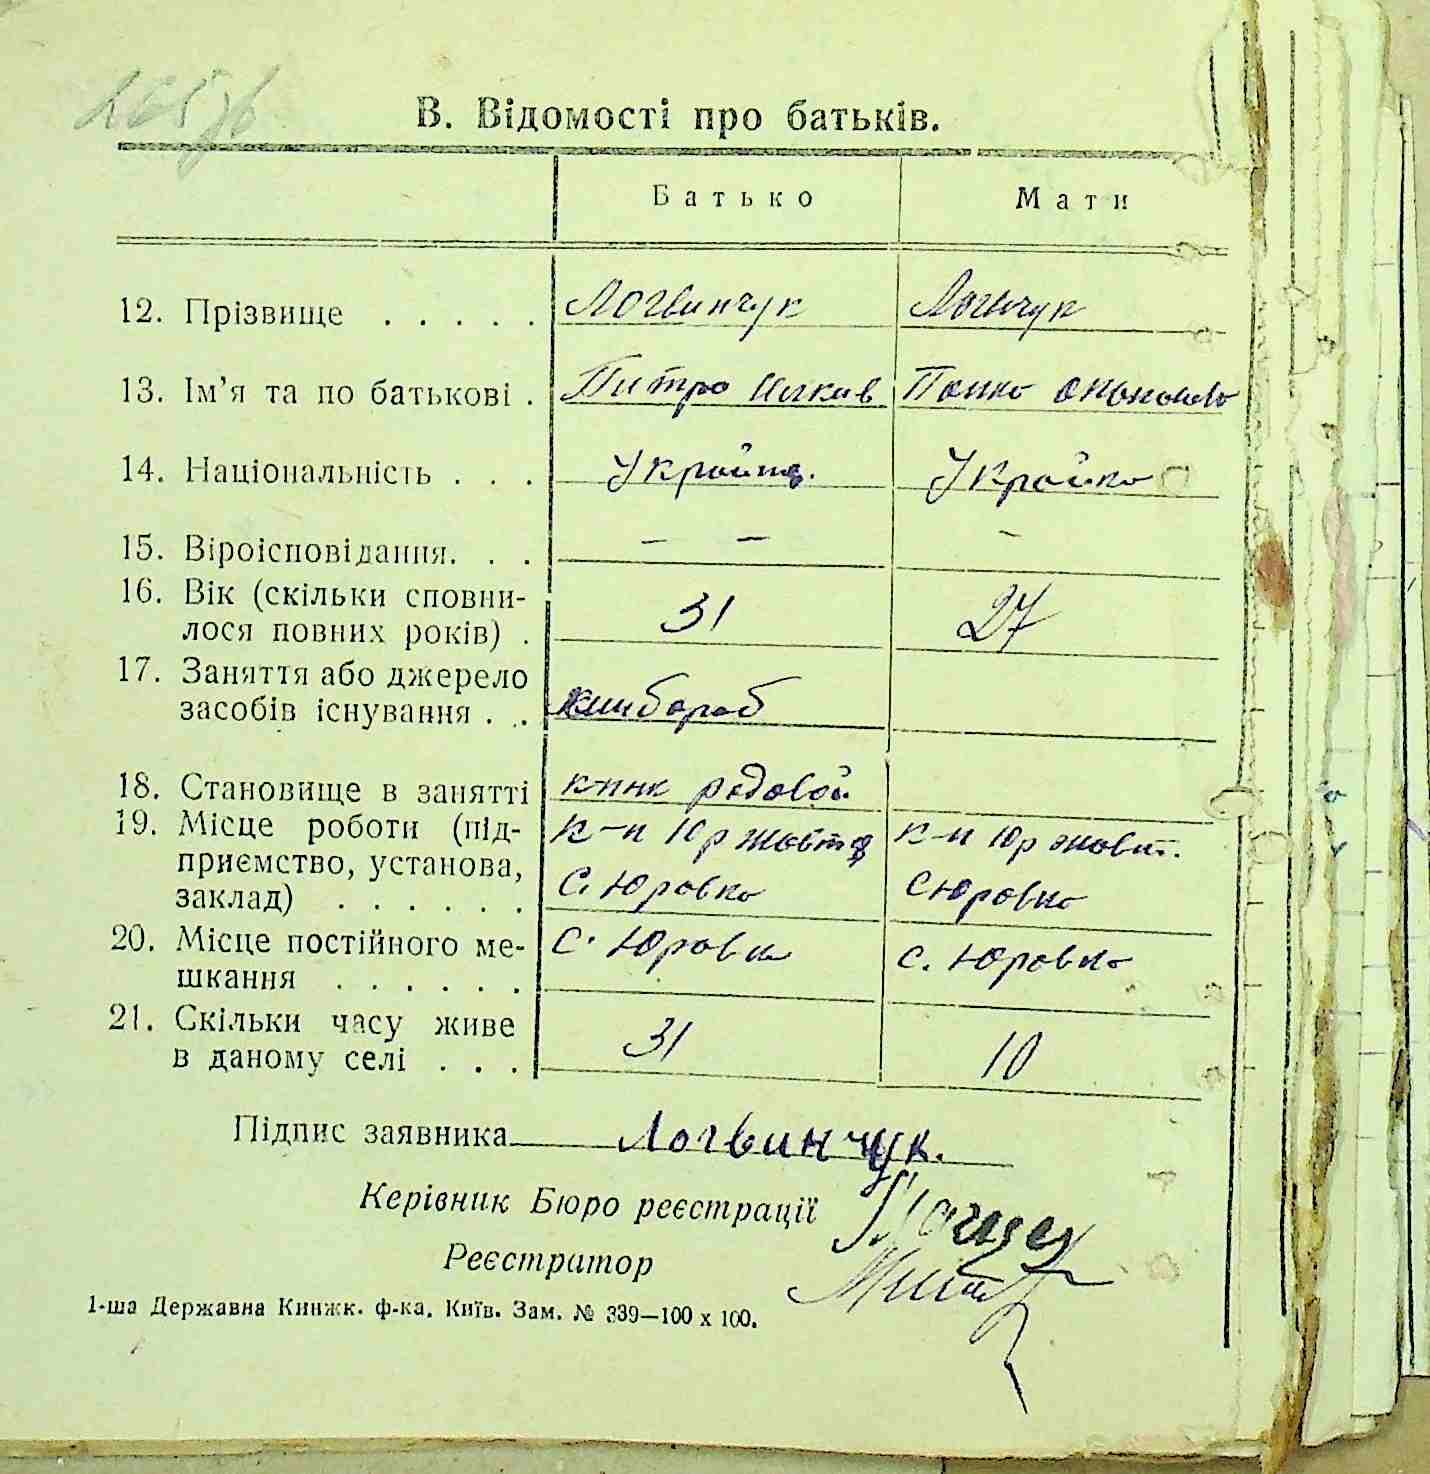 В. Відомості про батьків.
Батько Мати
12. Прізвище . . . . . Логвинчук Логвчук
13. Ім'я та по батькові . Питро
14. Національність . . . Україн. Україко
15. Віроісповідання. . . – – –
16. Вік (скільки сповни-
лося повних років) . 31 27
17. Заняття або джерело
засобів існування . . хлибораб
18. Становище в занятті рядовой
19. Місце роботи (під- К-п 10 р жовт К-п 10 р жовт.
приємство, установа,
заклад) . . . . . . С. Юровка С Юровка
20. Місце постійного ме- С. Юровка с. Юровка
шкання . . . . . .
21. Скільки часу живе
в даному селі . . . 31 10
Підпис заявника Логвинчук.
Керівник Бюро реєстрації
Реєстратор
1-ша Державна Книжк. ф-ка. Київ. Зам. № 339—100 х 100.